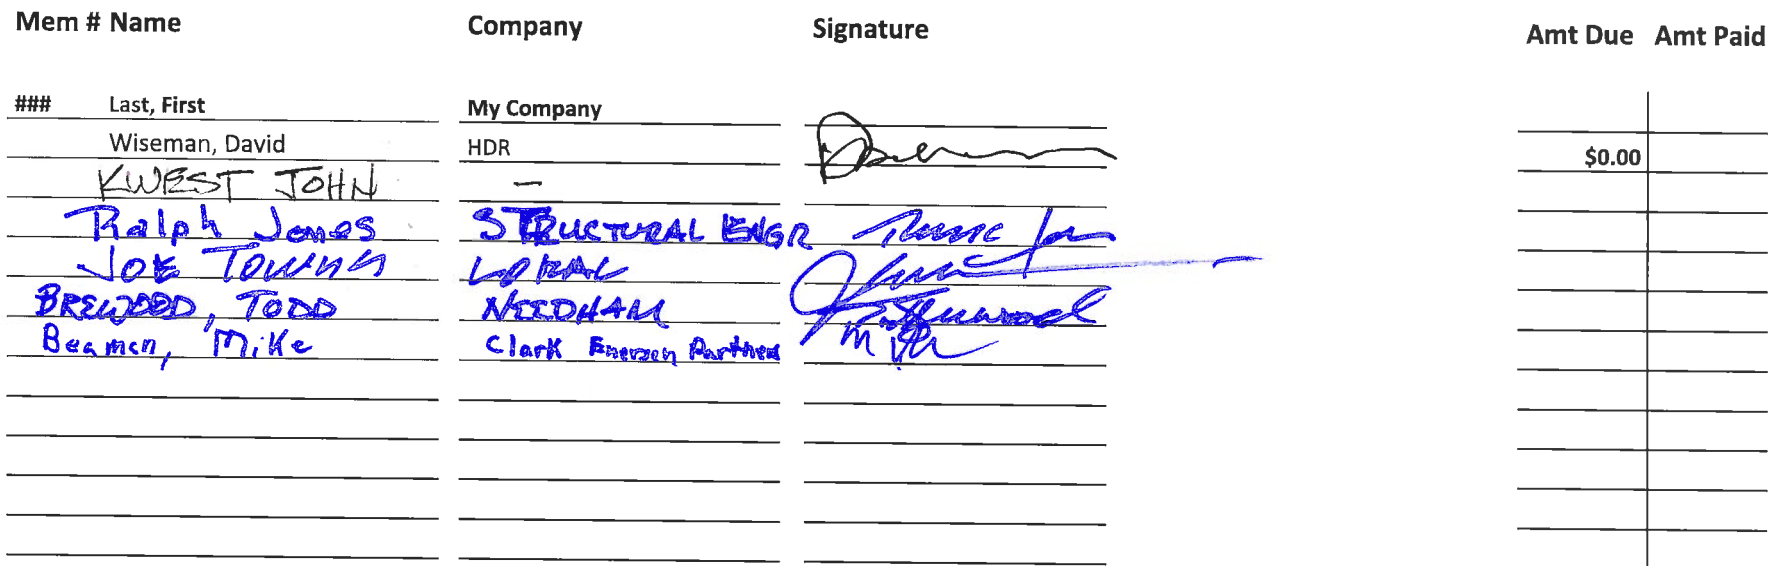 Mem # Name Company Signature Amt Due Amt Paid
### Last, First My Company
Wiseman, David HDR $0.00
KWEST JOHN –
Ralph Jones STRUCTURAL ENGR
JOE
BREWOOD, TODD NEEDHAM
Beaman, Mike Clark Enersen Partners